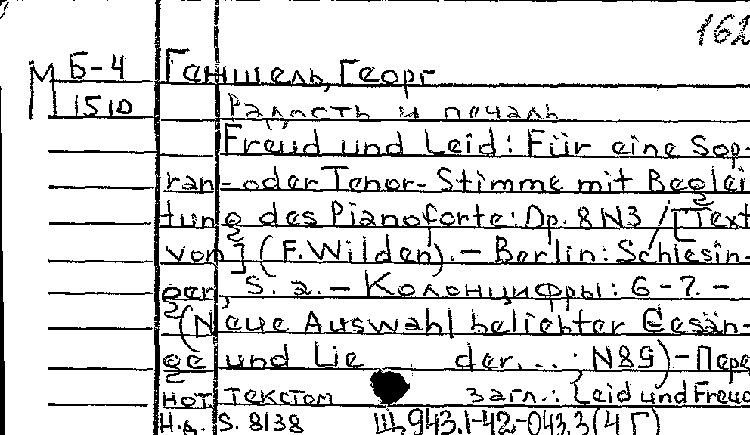 162
М Б-4 Ганшель, Георг
1510 Радость и печаль
Freud und Leid: Für eine Sop-
ran- oder Tenor-Stimme mit Beglei
tung des Pianoforte: Op. 8 N3 / [Text
von] (F. Wilden). — Berlin: Schlesin-
ger, S. a. — Колонцифры: 6-7. —
(Neue Auswahl beliebter Gesän-
ge und Lie der...; N89) — Пере
нот. текстом загл.: Leid und Freud
Н.д. S. 8138 Щ943.1-42-043.3(4Г)